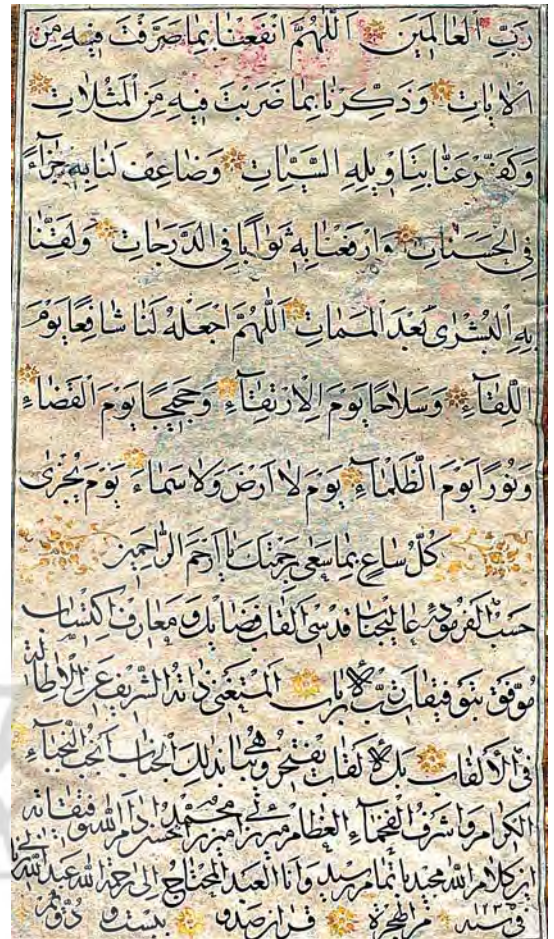 رَبِّ الْعَالَمِينَ اَللّٰهُمَّ انْفَعْنَا بِمَا صَرَّفْتَ فِيهِ مِنَ
الْاٰيَاتِ وَذَكِّرْنَا بِمَا ضَرَبْتَ فِيهِ مِنَ الْمَثُلَاتِ
وَكَفِّرْ عَنَّا بِتَاْوِيلِهِ السَّيِّئَاتِ وَضَاعِفْ لَنَا بِهِ جَزَآءً
فِي الْحَسَنَاتِ وَارْفَعْنَا بِهِ ثَوَابًا فِي الدَّرَجَاتِ وَلَقِّنَا
بِهِ الْبُشْرٰى بَعْدَ الْمَمَاتِ اَللّٰهُمَّ اجْعَلْهُ لَنَا شَافِعًا يَوْمَ
اللِّقَآءِ وَسِلَاحًا يَوْمَ الْاِرْتِقَآءِ وَحَجِيجًا يَوْمَ الْقَضَآءِ
وَنُورًا يَوْمَ الظَّلْمَآءِ يَوْمَ لَا اَرْضَ وَلَا سَمَآءَ يَوْمَ يُجْزٰى
كُلُّ سَاعٍ بِمَا سَعٰى بِرَحْمَتِكَ يَا اَرْحَمَ الرَّاحِمِينَ
حسب الفرموده عاليجناب قدسى القاب فضايل و معارف اكتساب
موفق بتوفيقات رب الارباب المستغنى ذاته الشريف عن الاطالة
فى الالقاب بل الالقاب يفتخر و هى بذلك الجناب انجب النجبآء
الكرام و اشرف الفخمآء العظام ميرزائى ميرزا محمد الحسن دام الله توفيقاته
اين كلام الله مجيد باتمام رسيد و انا العبد المحتاج الى رحمة الله عبد الله
فى سنه ١٢٣ من الهجرة قرار صد و بيست و